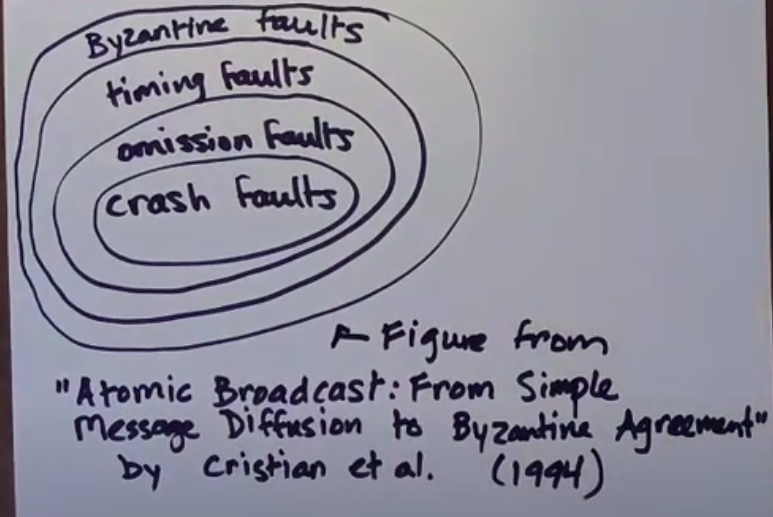 Byzantine faults
timing faults
omission faults
crash faults
Figure from
"Atomic Broadcast: From Simple
Message Diffusion to Byzantine Agreement"
by Cristian et al. (1994)